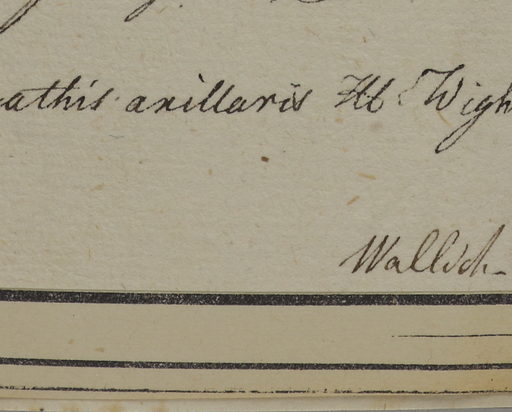 athis axillaris H Wigh
Wallich